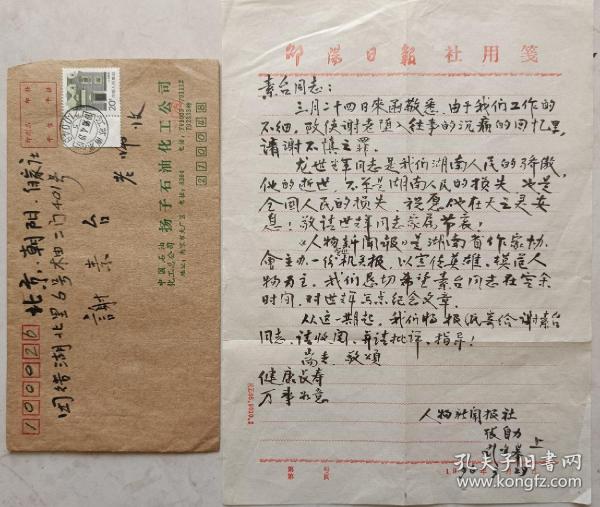 邵阳日报 社用笺
素台同志:
三月二十四日来函敬悉,由于我们工作的
不细,致使谢老堕入往事的沉痛的回忆里,
请谢不慎之罪。
龙世辉同志是我们湖南人民的骄傲,
他的逝世,不单是湖南人民的损失,也是
全国人民的损失,祝愿他在天之灵安
息!敬请世辉同志家属节哀!
《人物新闻报》是湖南省作家协
会主办一份机关报,以宣传英雄、模范人
物为主,我们恳切希望素台同志在空余
时间,对世辉写点纪念文章。
从这一期起,我们将报纸寄给谢素台
同志,请收阅,并请批评、指导!
耑走,敬颂
健康长寿
万事如意
人物新闻报社
张自力
上
100026
北京.朝阳.
团结湖北里6号
401号
謝素台
老师收
中国石油化工总公司 扬子石油化工公司
210048
20分
孔夫子旧书网
www.kongfz.com